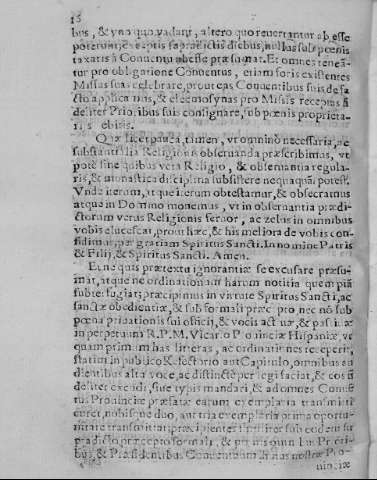 bus, & vno quo vadant, altero quo reuertantur ab esse
poterunt, exceptis supradictis diebus, nullus sub pœnis
taxatis à Conuentu abesse præsumat. Et omnes tenean
tur pro obligatione Conuentus, etiam foris existentes
Missas suas celebrare, prout eas Conuentibus suis de fa
cto applicamus, & eleemosynas pro Missis receptas fi
deliter Prioribus suis consignare, sub pœnis proprieta
Quæ licet pauca, tamen, vt omnino necessaria, ac
substantialia Religioni & obseruanda præscribimus, vt
potè sine quibus vera Religio, & obseruantia regula
ris, & monastica disciplina subsistere nequaquam potest.
Vnde iterum, atque iterum obtestamur, & obsecramus
atque in Domino monemus, vt in obseruantia prædi-
ctorum verus Religionis feruor, ac zelus in omnibus
vobis elucescat, prout hæc, & his meliora de vobis con-
fidimus, per gratiam Spiritus Sancti. In nomine Patris
& Filij, & Spiritus Sancti. Amen.
Et ne quis prætextu ignorantiæ se excusare præsu-
mat, atque ne ordinationum harum notitia quempiam
subterfugiat; præcipimus in virtute Spiritus Sancti, ac
sanctæ obedientiæ, & sub formali præcepto, nec nõ sub
pœna priuationis sui officij, & vocis actiuæ, & passiuæ
in perpetuum R.P.M. Vicario Prouinciæ Hispaniæ, vt
quam primum has litteras, ac ordinationes receperit,
statim in publico Refectorio aut Capitulo, omnibus au
dientibus alta voce, ac distinctè perlegi faciat, & eos fi
deliter excudi, siue typis mandari, & ad omnes Conuẽ
tus Prouinciæ præfatæ earum exemplaria transmitti
curet, nobisque duo, aut tria exemplaria prima oportu-
nitate transmittat; præcipientes similiter sub eodem su
pradicto præcepto formali, & pœnis quinimo Priori-
bus, & Præsidentibus Conuentuum illius nostræ Pro-
uinciæ